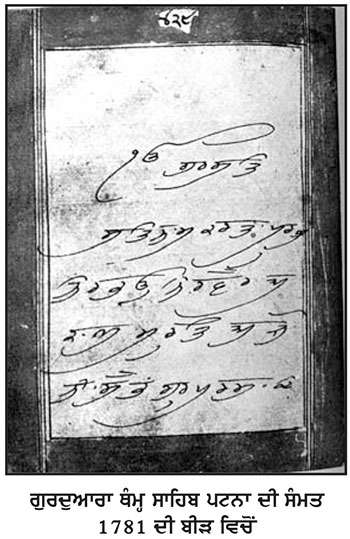 ੪੨੯
ੴ ਸਤਿ
ਸਤਿਨਾਮ ਕਰਤਾ ਪੁਰਖ
ਨਿਰਭਉ ਨਿਰਵੈਰ ਅ
ਕਾਲ ਮੂਰਤਿ ਅਜੋ
ਨੀ ਸੈਭੰ ਗੁਰਪਰਸਾਦਿ
ਗੁਰਦੁਆਰਾ ਥੰਮ੍ਹ ਸਾਹਿਬ ਪਟਨਾ ਦੀ ਸੰਮਤ
1781 ਦੀ ਬੀੜ ਵਿਚੋਂ